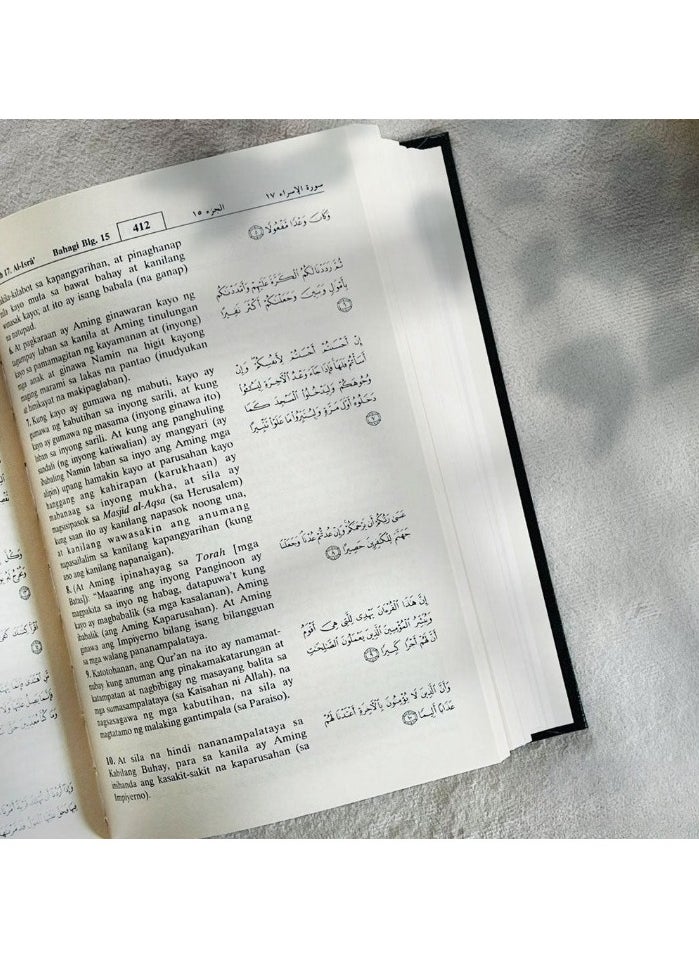 17. Al-Isrâ' Bahagi Blg. 15 412 الجزء ١٥ سورة الإسراء ١٧
kila-kilabot sa kapangyarihan, at pinaghanap
nila kayo mula sa bawat bahay at kanilang
winasak kayo; at ito ay isang babala (na ganap)
na natupad.
6. At pagkaraan ay Aming ginawaran kayo ng
tagumpay laban sa kanila at Aming tinulungan
kayo sa pamamagitan ng kayamanan at (inyong)
mga anak at ginawa Namin na higit kayong
maging marami sa lakas na pantao (inudyukan
at hinikayat na makipaglaban).
7. Kung kayo ay gumawa ng mabuti, kayo ay
gumawa ng kabutihan sa inyong sarili, at kung
kayo ay gumawa ng masama (inyong ginawa ito)
laban sa inyong sarili. At kung ang panghuling
sandali (ng inyong katiwalian) ay mangyari (ay
ibabaling Namin laban sa inyo ang Aming mga
alipin) upang hamakin kayo at parusahan kayo
hanggang ang kahirapan (karukhaan) ay
mabanaag sa inyong mukha, at sila ay
magsisipasok sa Masjid al-Aqsa (sa Herusalem)
kung saan ito ay kanilang napasok noong una,
at kanilang wawasakin ang anumang
napasailalim sa kanilang kapangyarihan (kung
ano ang kanilang napanaigan).
8. (At Aming ipinahayag sa Torah [mga
Batas]): “Maaaring ang inyong Panginoon ay
magpakita sa inyo ng habag, datapuwa't kung
kayo ay magbabalik (sa mga kasalanan), Aming
ibabalik (ang Aming Kaparusahan). At Aming
ginawa ang Impiyerno bilang isang bilangguan
sa mga walang pananampalataya.
9. Katotohanan, ang Qur'an na ito ay namamat-
nubay kung anuman ang pinakamakatarungan at
katampatan at nagbibigay ng masayang balita sa
mga sumasampalataya (sa Kaisahan ni Allah), na
nagsasagawa ng mga kabutihan, na sila ay
magtatamo ng malaking gantimpala (sa Paraiso).
10. At sila na hindi nananampalataya sa
Kabilang Buhay, para sa kanila ay Aming
inihanda ang kasakit-sakit na kaparusahan (sa
Impiyerno).
وَكَانَ وَعْدًا مَّفْعُولًا ٥
ثُمَّ رَدَدْنَا لَكُمُ الْكَرَّةَ عَلَيْهِمْ وَأَمْدَدْنَكُم
بِأَمْوَلٍ وَبَنِينَ وَجَعَلْنَكُمْ أَكْثَرَ نَفِيرًا ٦
إِنْ أَحْسَنتُمْ أَحْسَنتُمْ لِأَنفُسِكُمْ وَإِنْ
أَسَأْتُمْ فَلَهَا فَإِذَا جَاءَ وَعْدُ الْآخِرَةِ لِيَسُـُٔوا
وُجُوهَكُمْ وَلِيَدْخُلُوا الْمَسْجِدَ كَمَا
دَخَلُوهُ أَوَّلَ مَرَّةٍ وَلِيُتَبِّرُوا مَا عَلَوْا تَتْبِيرًا ٧
عَسَى رَبُّكُمْ أَن يَرْحَمَكُمْ وَإِنْ عُدتُّمْ عُدْنَا وَجَعَلْنَا
جَهَنَّمَ لِلْكَفِرِينَ حَصِيرًا ٨
إِنَّ هَذَا الْقُرْءَانَ يَهْدِى لِلَّتِى هِىَ أَقْوَمُ
وَيُبَشِّرُ الْمُؤْمِنِينَ الَّذِينَ يَعْمَلُونَ الصَّلِحَتِ
أَنَّ لَهُمْ أَجْرًا كَبِيرًا ٩
وَأَنَّ الَّذِينَ لَا يُؤْمِنُونَ بِالْآخِرَةِ أَعْتَدْنَا لَهُمْ
عَذَابًا أَلِيمًا ١٠